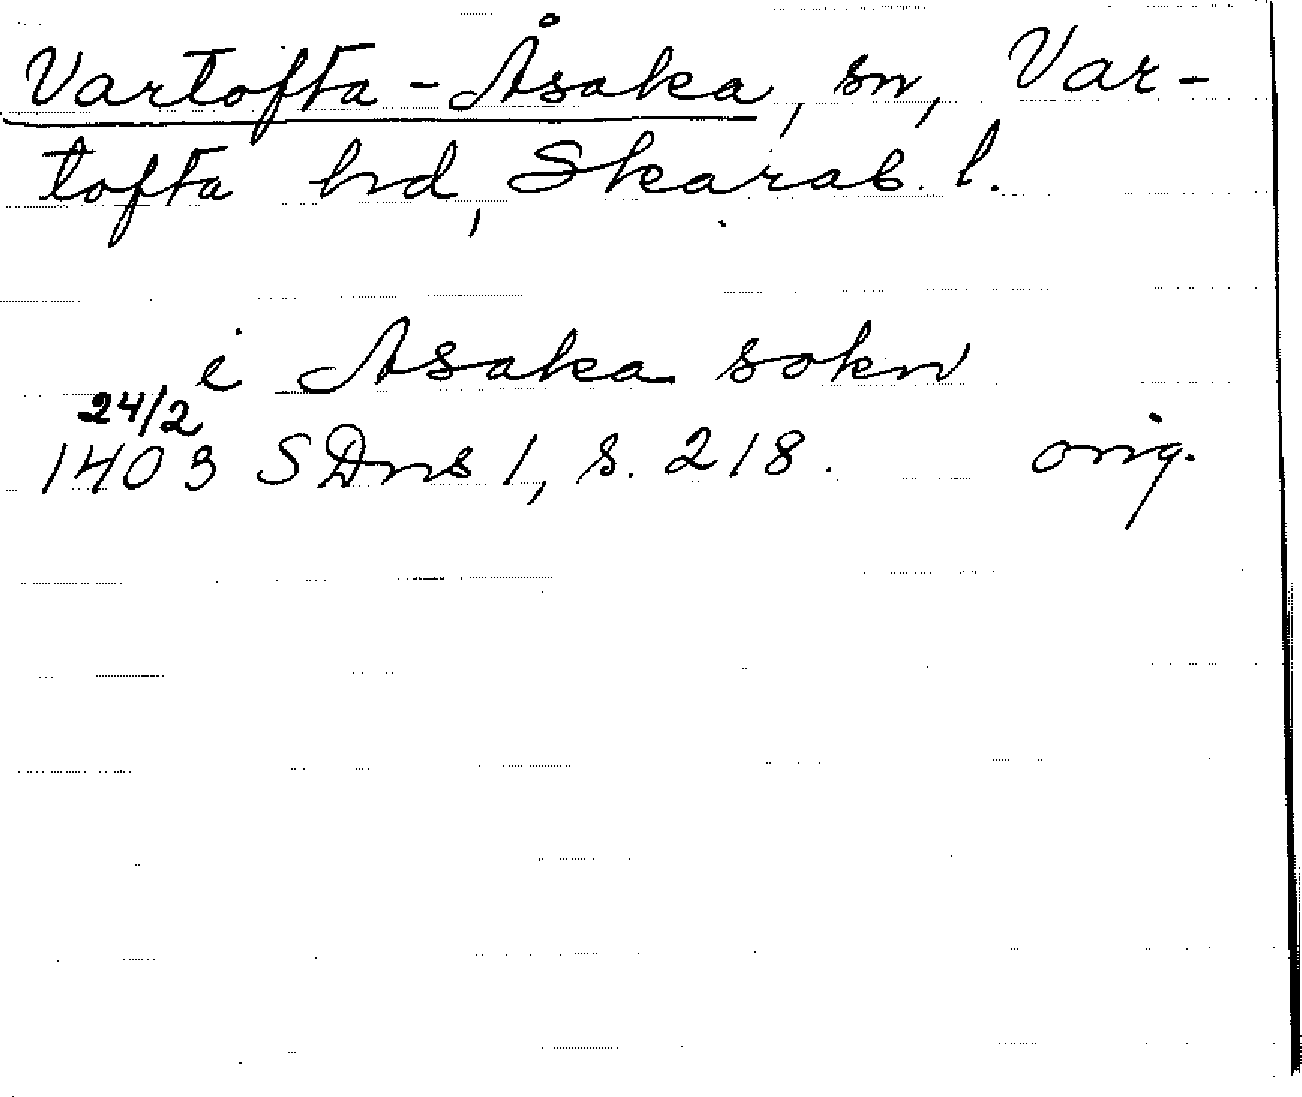 Vartofta-Åsaka, sn, Var-
tofta hd, Skarab. l.
i Asaka sokn
24/2
1403 SDns 1, s. 218. orig.